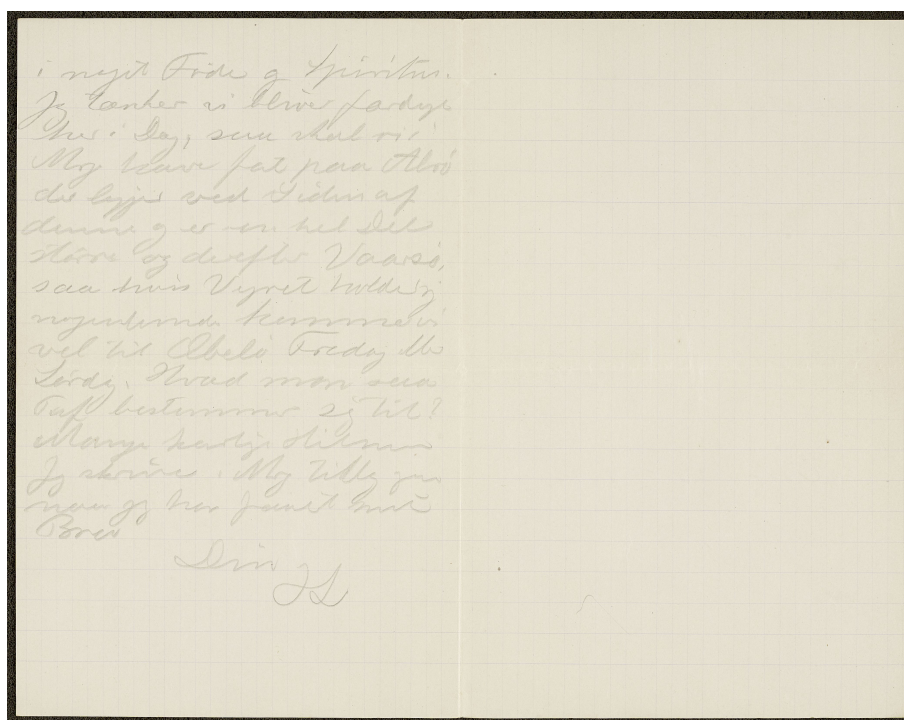 i noget Föde og Spiritus.
Jeg tænker vi bliver færdige
her i Dag, saa skal vi i
Mrg have fat paa Alrö
der ligger ved Siden af
denne og er en hel Del
större og derefter Vaarsö,
saa hvis Vejret holder sig
nogenlunde kommer vi
vel til Æbelö Fredag eller
Lördg. Hvad mon saa
Taf bestemmer sig til?
Mange kærlige Hilsner
Jg skriver i Mrg tillige
naar jeg har faaet
Brev
Din
JL